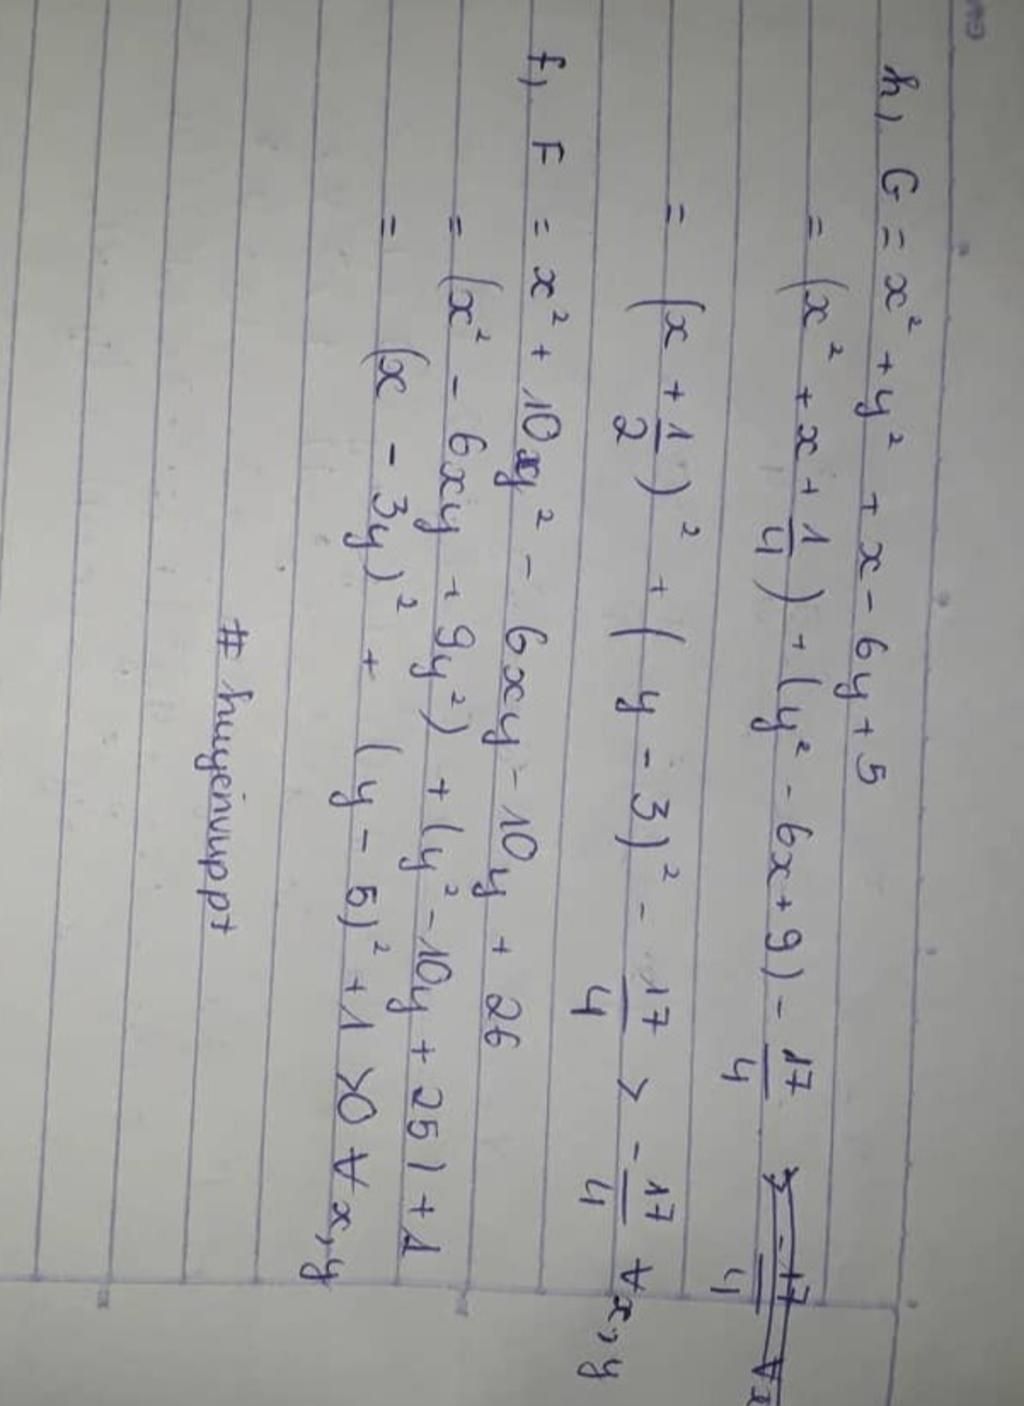 h, G = x² + y² + x - 6y + 5
= (x² + x + 1/4) + (y² - 6x + 9) - 17/4
= (x + 1/2)² + (y - 3)² - 17/4 > -17/4 ∀x,y
f, F = x² + 10y² - 6xy - 10y + 26
= (x² - 6xy + 9y²) + (y² - 10y + 25) + 1
= (x - 3y)² + (y - 5)² + 1 > 0 ∀x,y
# huyenvuppt